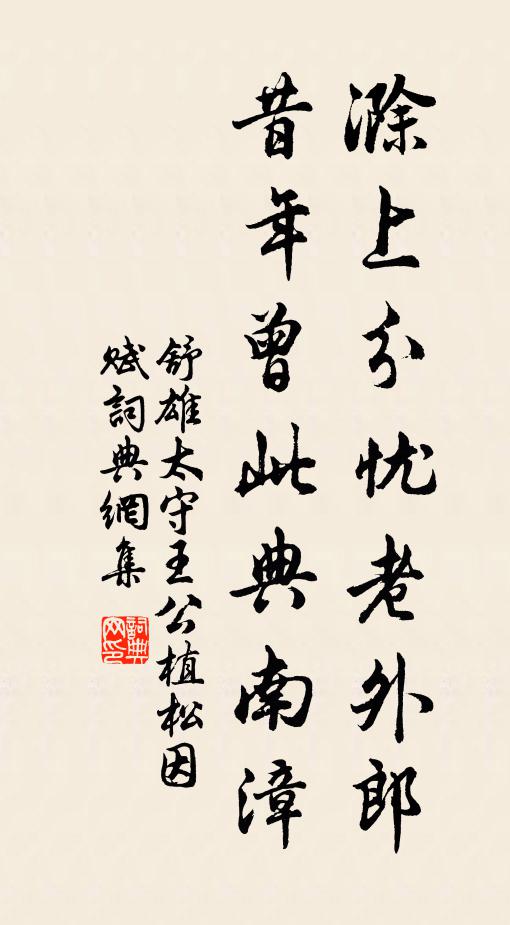 滁上分忧老外郎
昔年曾此典南漳
舒雄太守王公植松因
赋詞典網集
詞典网印